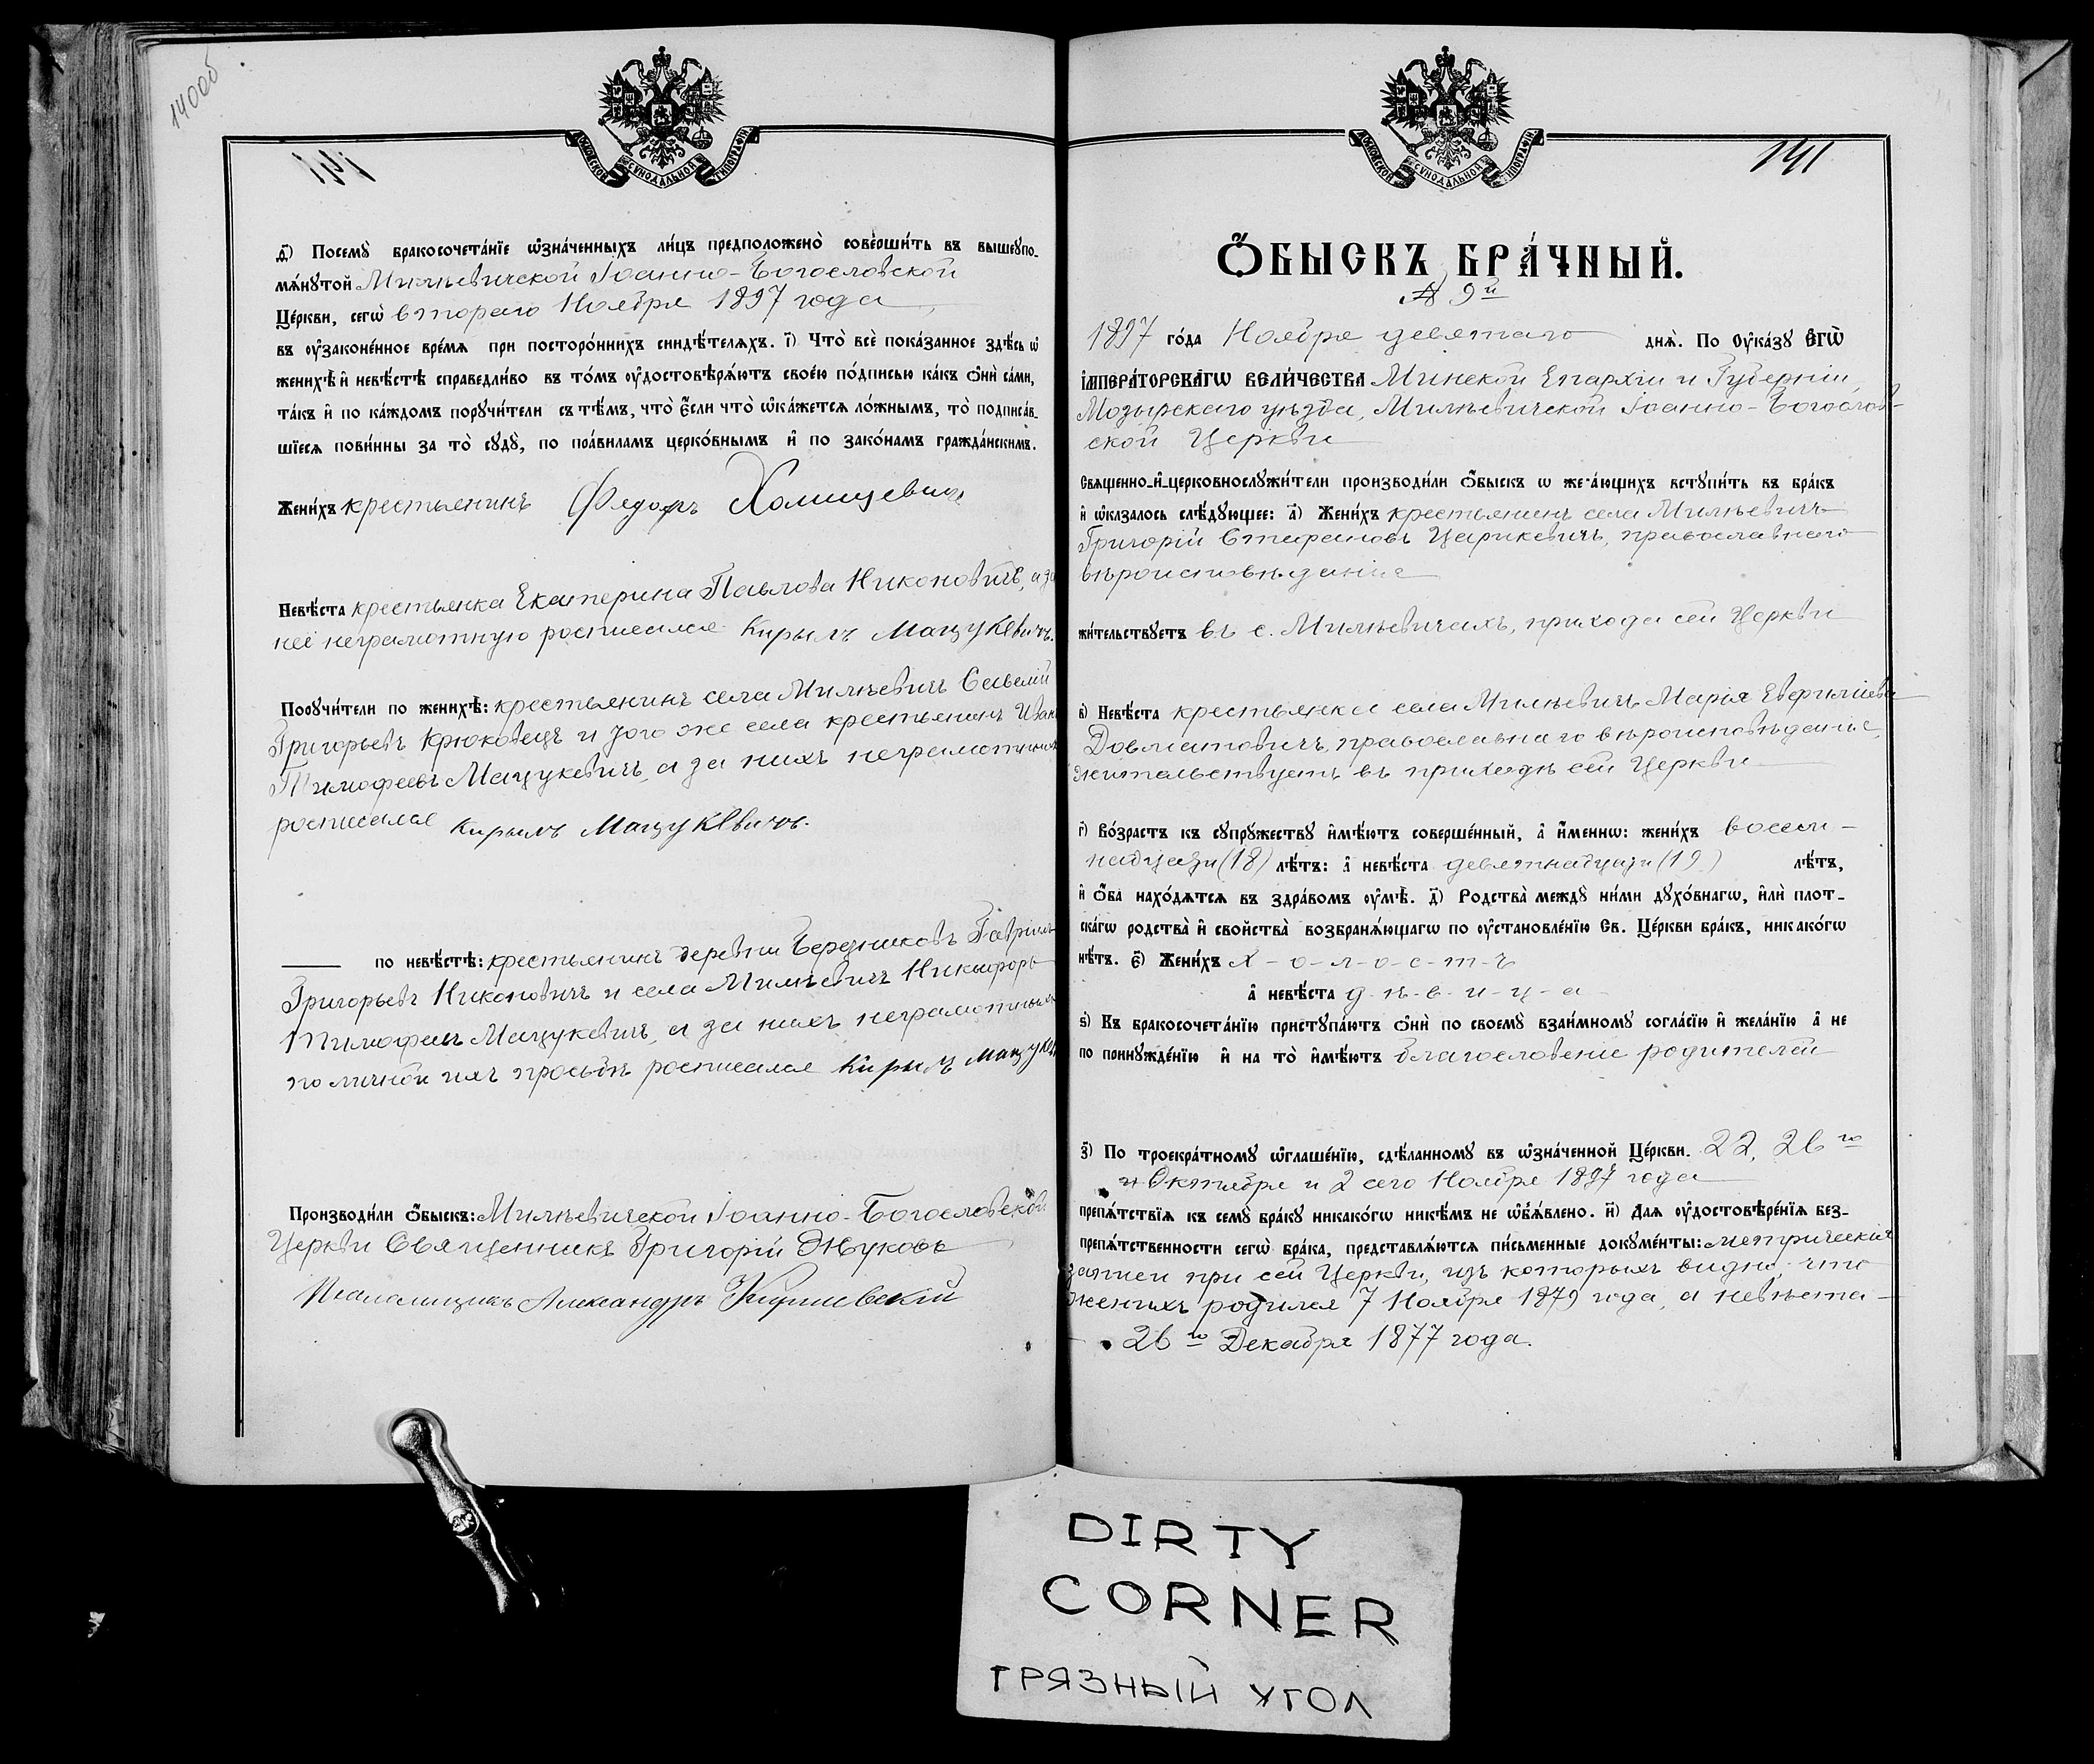 140об
141
МОСКОВСКОЙ СѴНОДАЛЬНОЙ ТИПОГРАФІИ
д҃і) Посемꙋ̀ бракосочета́нїе ѡ҆зна́ченныхъ ли́цъ предположено̀ соверши́ть въ вышеꙋпо-
мѧ́нꙋтой Милѣевичской Іоанно-Богословской
Це́ркви, сегѡ̀ втораго Ноября 1897 года
въ ᲂу҆законе́нное вре́мѧ при посторо́ннихъ свидѣ́телѧхъ. і҃) Что̀ всѐ пока́занное здѣ́сь ѡ҆
женихѣ̀ и҆ невѣ́стѣ справедли́во въ то́мъ ᲂу҆достовѣрѧ́ютъ свое́ю по́дписью ка́къ ѻ҆нѝ са́ми,
та́къ и҆ по ка́ждомъ порꙋчи́тели съ тѣ́мъ, что̀ є҆́сли что̀ ѡ҆ка́жетсѧ ло́жнымъ, то̀ подписа́в-
шїесѧ пови́нны за то̀ сꙋдꙋ̀, по пра́виламъ церко́внымъ и҆ по зако́намъ гражда́нскимъ.
Жени́хъ крестьянинъ Федоръ Холицевичъ
Невѣ́ста крестьянка Екатерина Павлова Никоновичъ, а за
неё неграмотную росписался Кирылъ Мацукевичъ.
Порꙋчи́тели по женихѣ̀: крестьянинъ села Милѣевичъ Савелій
Григорьевъ Крюковецъ и того же села крестьянинъ Иванъ
Тимофеевъ Мацукевичъ, а за нихъ неграмотныхъ
росписался Кирылъ Мацукевичъ.
по невѣ́стѣ: крестьянинъ деревни Бередниковъ Гаврiилъ
Григорьевъ Никоновичъ и села Милѣевичъ Никифоръ
Тимофеевъ Мацукевичъ, а за нихъ неграмотныхъ
по личной ихъ просьбѣ росписался Кирылъ Мацукев
Производи́ли ѻ҆́быскъ: Милѣевичской Іоанно-Богословской
Церкви Священникъ Григорій Жуковъ
Псаломщикъ Александръ
МОСКОВСКОЙ СѴНОДАЛЬНОЙ ТИПОГРАФІИ
141
Ѻ҆́БЫСКЪ БРА́ЧНЫЙ.
№ 9й
1897 го́да Ноября девятаго днѧ̀. По Оу҆ка́зꙋ Є҆гѡ̀
І҆мпера́торскагѡ вели́чества Минской Епархіи и Губерніи,
Мозырскаго уѣзда, Милѣевичской Іоанно-Богослов-
ской Церкви
Свѧщенно-и҆-церковнослꙋжи́тели производи́ли ѻ҆́быскъ ѡ҆ жела́ющихъ встꙋпи́ть въ бра́къ
и҆ ѡ҆казалось слѣ́дꙋющее: а҃) Жени́хъ крестьянинъ села Милѣевичъ
Григорій Стефановъ Царикевичъ, православнаго
вѣроисповѣданія
жи́тельствꙋетъ въ с. Милѣевичахъ, прихода сей Церкви
в҃) Невѣ́ста крестьянка села Милѣевичъ Марія Евфиміева
Довматовичъ, православнаго вѣроисповѣданія,
жительствуетъ въ приходѣ сей Церкви
г҃) Во́зрастъ къ сꙋпрꙋжествꙋ и҆мѣ́ютъ соверше́нный, а҆ и҆́менно: жени́хъ восем-
надцати (18) лѣ́тъ: а҆ невѣ́ста девятнадцати (19) лѣ́тъ,
и҆ ѻ҆́ба нахо́дѧтсѧ въ здра́вомъ ᲂу҆мѣ̀. д҃) Родства̀ междꙋ̀ ни́ми дꙋхо́внагѡ, и҆лѝ плот-
ска́гѡ родства̀ и҆ свойства̀ возбранѧ́ющагѡ по ᲂу҆становле́нїю Св. Це́ркви бра́къ, никако́гѡ
нѣ́тъ. є҃) Жени́хъ х-о-л-о-с-т-ъ
а҆ невѣ́ста д-ѣ-в-и-ц-а
ѕ҃) Къ бракосочета́нїю пристꙋпа́ютъ ѻ҆нѝ по своемꙋ̀ взаи́мномꙋ согла́сїю и҆ жела́нїю а҆ не
по принꙋжде́нїю и҆ на то̀ и҆мѣ́ютъ благословеніе родителей
з҃) По троекра́тномꙋ ѡ҆глаше́нїю, сдѣ́ланномꙋ въ ѡ҆зна́ченной Це́ркви. 22, 26го
Октября и 2 сего Ноября 1897 года
препѧ́тствїѧ къ семꙋ̀ бра́кꙋ никако́гѡ никѣ́мъ не ѡ҆б̾ѧ́влено. и҃) Длѧ ᲂу҆достовѣре́нїѧ без-
препѧ́тственности сегѡ̀ бра́ка, представлѧ́ютсѧ пи́сьменные докꙋме́нты: метрическія
записи при сей Церкви, изъ которыхъ видно, что
женихъ родился 7 Ноября 1879 года, а невѣста-
26го Декабря 1877 года.
DIRTY
CORNER
ГРЯЗНЫЙ УГОЛ